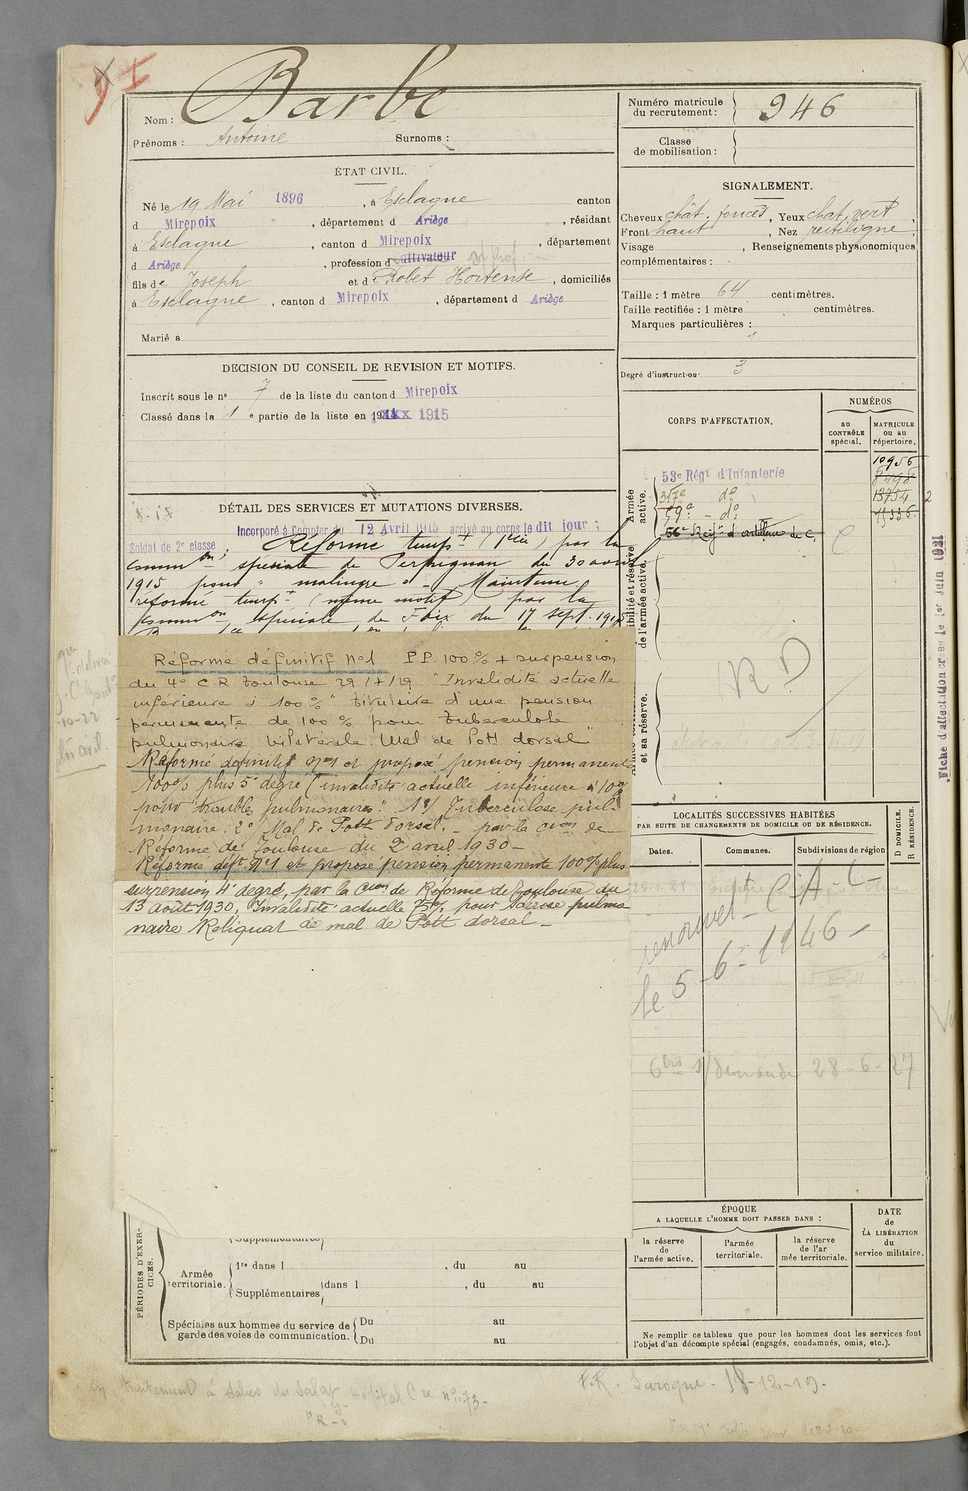 Barbe
Nom :
Prénoms : Antoine Surnoms :
ÉTAT CIVIL.
Né le 19 Mai 1896, à Esclagne canton
d Mirepoix, département d Ariège, résidant
à Esclagne, canton d Mirepoix, département
d Ariège, profession d cultivateur
fils de Joseph et d Robet Hortense, domiciliés
à Esclagne, canton d Mirepoix, département d Ariège
Marié à
DECISION DU CONSEIL DE REVISION ET MOTIFS.
Inscrit sous le n° 7 de la liste du canton d Mirepoix
Classé dans la 1 e partie de la liste en 1915
DÉTAIL DES SERVICES ET MUTATIONS DIVERSES.
Incorporé à Compter du 12 Avril 1915 arrivé au corps le dit jour ;
Soldat de 2e classe ; Réformé tempt (1re) par la
common spéciale de Perpignan du 30 avril
1915 pour " malingre " - Maintenu
réformé tempt (même motif) par la
Common spéciale de Foix du 17 sept. 1915
Réforme définitif N°1 P.P. 100 % + suspension
du 4° C.R. Toulouse 29/7/29 "Invalidité actuelle
inférieure à 100 %" titulaire d'une pension
permanente de 100 % pour tuberculose
pulmonaire bilatérale. Mal de Pott dorsal"
Réformé définitif N°1 et proposé pension permanente
100% plus 5° degré (invalidité actuelle inférieure à 100
pour "troubles pulmonaires" 1°/ Tuberculose pul
monaire. 2° Mal de Pott dorsal. - par la Cion de
Réforme de Toulouse du 2 avril 1930 -
Réformé déft N°1 et proposé pension permanente 100% plus
suspension 4° degré, par la Cion de Réforme de Toulouse du
13 août 1930, Invalidité actuelle 75% pour Sclérose pulmo
naire Reliquat de mal de Pott dorsal -
PÉRIODES D'EXER-
CICES.
Supplémentaires
Armée
territoriale.
1re dans l , du au
Supplémentaires dans l , du au
Spéciales aux hommes du service de
garde des voies de communication.
Du au
Du au
traitement à Salies du Salat hôpital
F.R. Laroque - 18-12-19-
Numéro matricule
du recrutement : 946
Classe
de mobilisation :
SIGNALEMENT.
Cheveux chât. foncés, Yeux chat. vert,
Front haut, Nez rectiligne,
Visage , Renseignements physionomiques
complémentaires :
Taille : 1 mètre 64 centimètres.
Taille rectifiée : 1 mètre centimètres.
Marques particulières :
Degré d'instruction 3
CORPS D'AFFECTATION.
NUMÉROS
au
CONTRÔLE
spécial.
MATRICULE
ou au
répertoire.
Armée
active.
53e Régt d'Infanterie 10956
317e d°
59e - d°
56e Regt d'artillerie de C
de l'armée active.
et sa réserve.
RD
Fiche d'affectation créée le 1er Juin 1921
LOCALITÉS SUCCESSIVES HABITÉES
PAR SUITE DE CHANGEMENTS DE DOMICILE OU DE RÉSIDENCE.
Dates. Communes. Subdivisions de région
D DOMICILE.
R RÉSIDENCE.
renouvelt C A C
le 5-6-1946 -
6 demande 28-6-27
ÉPOQUE
A LAQUELLE L'HOMME DOIT PASSER DANS :
la réserve
de
l'armée active.
l'armée
territoriale.
la réserve
de l'ar
mée territoriale.
DATE
de
LA LIBÉRATION
du
service militaire.
Ne remplir ce tableau que pour les hommes dont les services font
l'objet d'un décompte spécial (engagés, condamnés, omis, etc.).